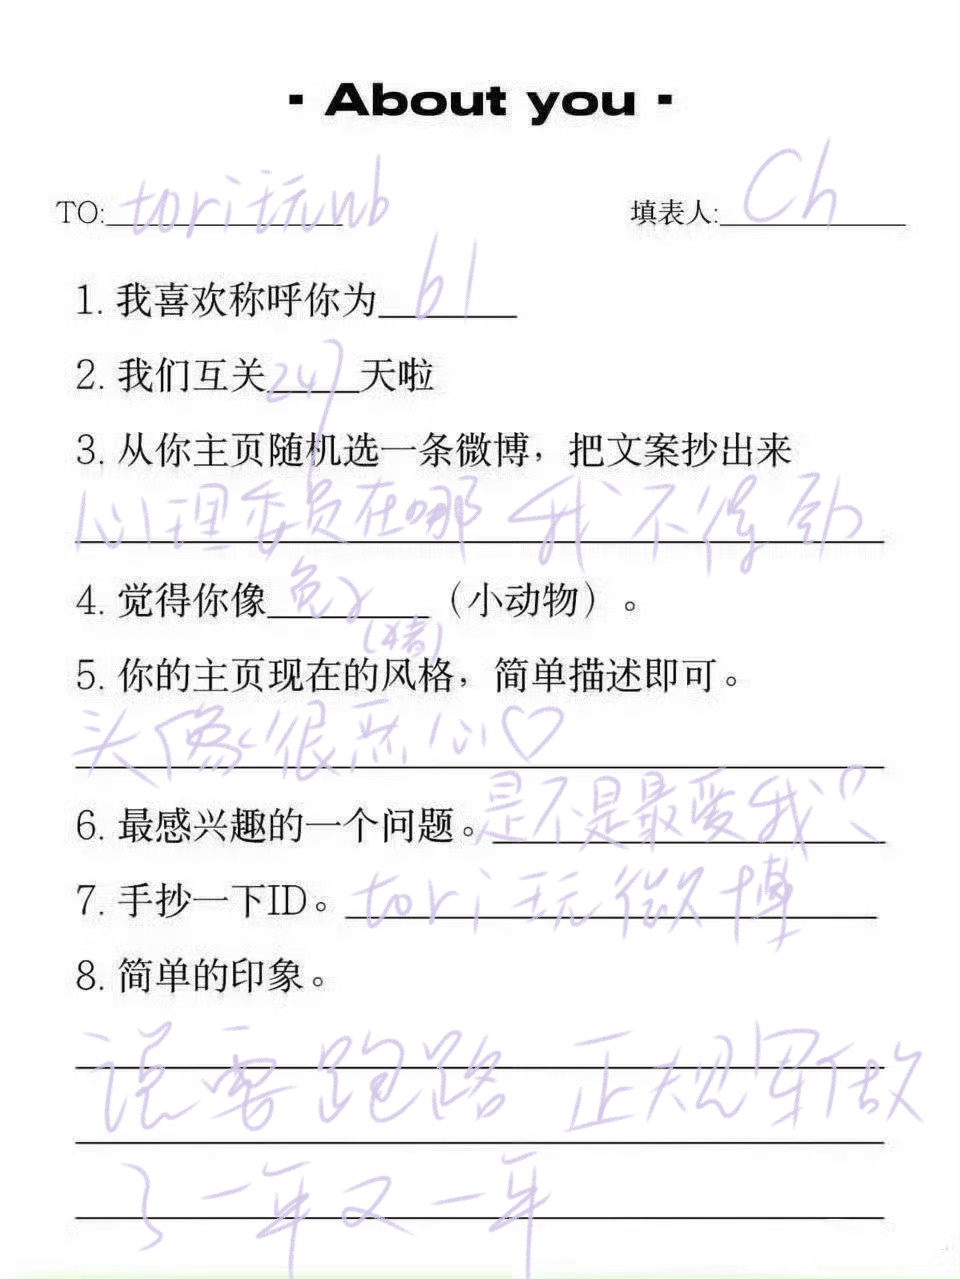 - About you -
TO: tori玩wb 填表人: Ch
1. 我喜欢称呼你为 b1
2. 我们互关 247 天啦
3. 从你主页随机选一条微博，把文案抄出来
心理委员在哪 我不得劲
4. 觉得你像 兔子 （小动物）。
(猪)
5. 你的主页现在的风格，简单描述即可。
头像很恶心♡
6. 最感兴趣的一个问题。是不是最爱我？
7. 手抄一下ID。tori玩微博
8. 简单的印象。
说要跑路 正规军做
了一年又一年